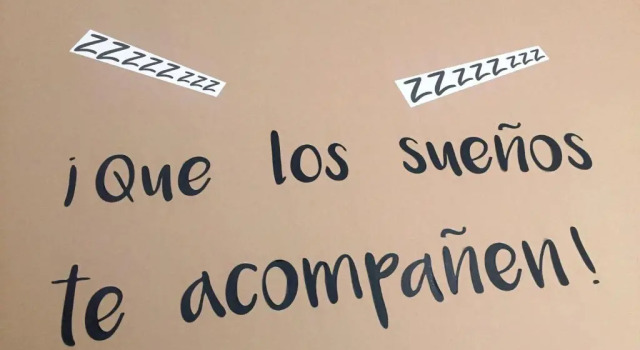 ZZZZZZZZ ZZZZZZZZ
¡Que los sueños
te acompañen!